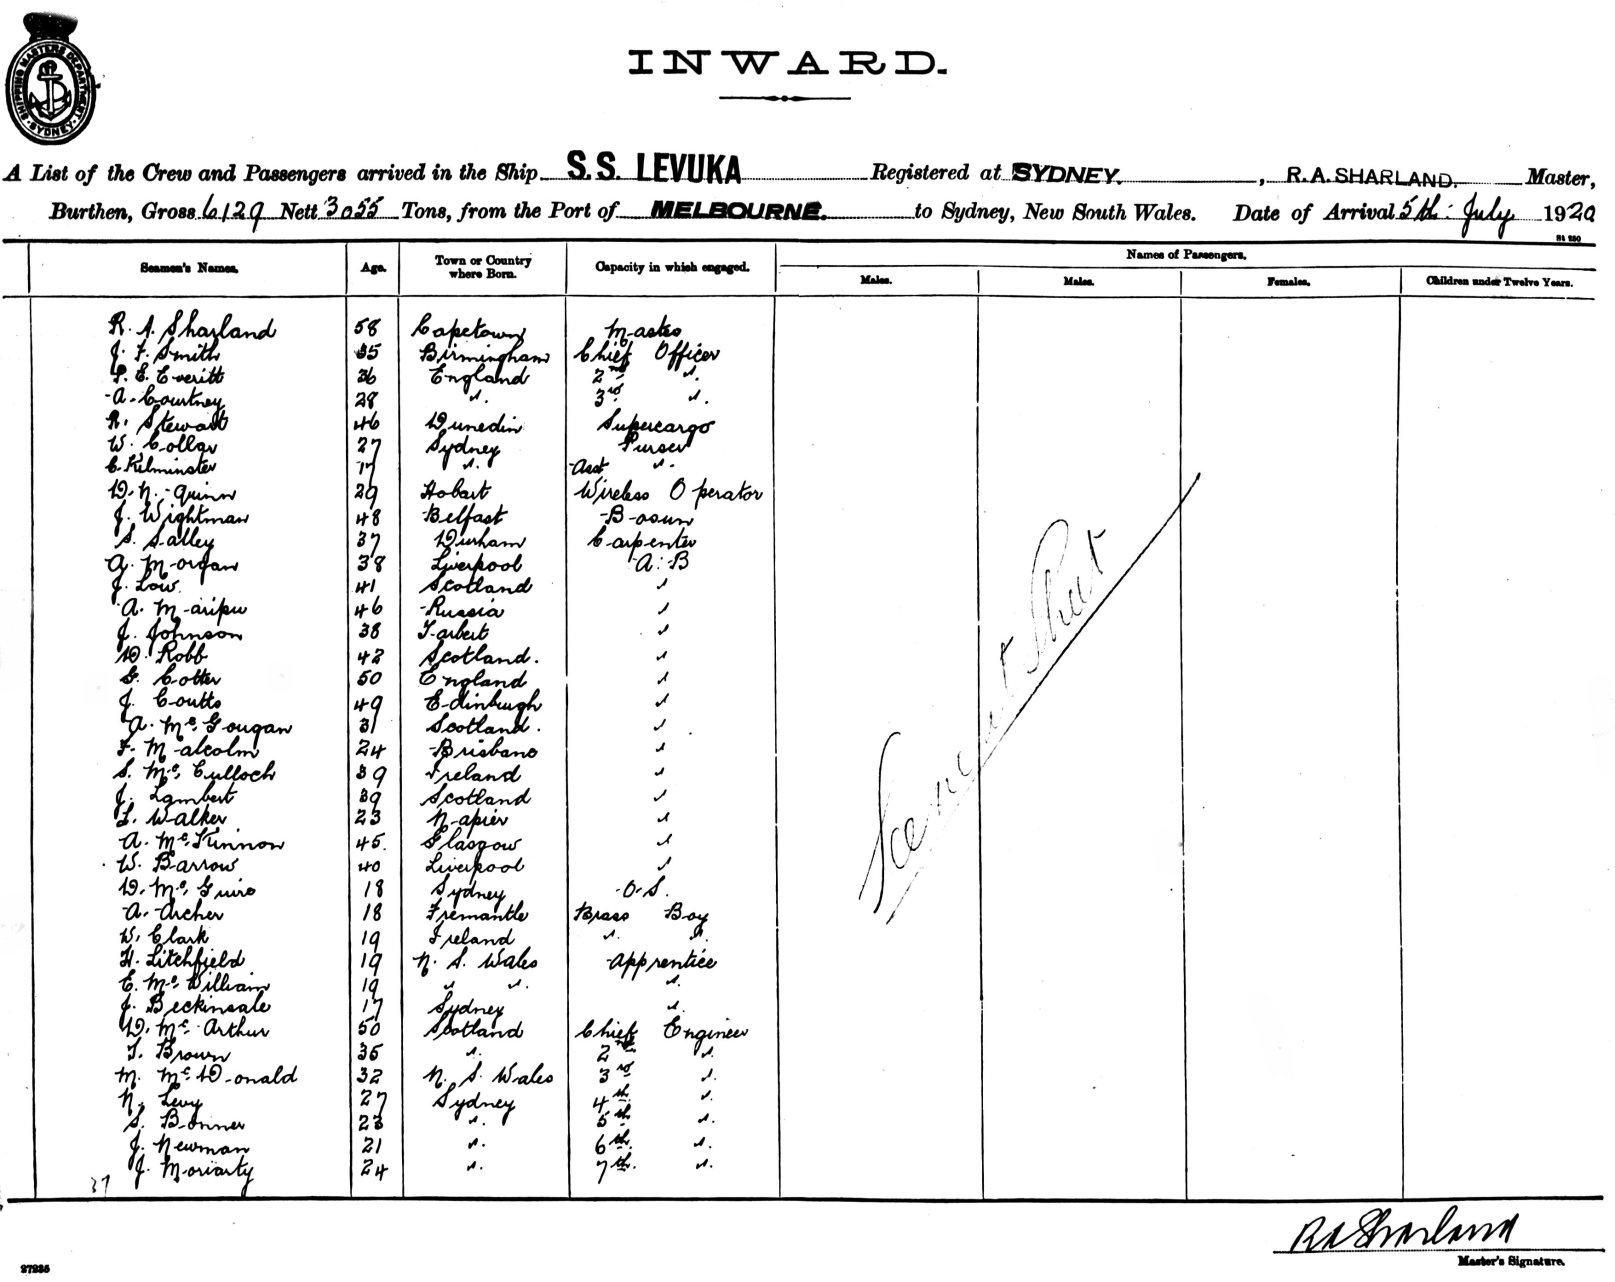 SHIPPING MASTERS DEPARTMENT
SYDNEY
INWARD.
A List of the Crew and Passengers arrived in the Ship S.S. LEVUKA Registered at SYDNEY. , R.A. SHARLAND. Master,
Burthen, Gross 6129 Nett 3055 Tons, from the Port of MELBOURNE. to Sydney, New South Wales. Date of Arrival 5th July 1920
Seamen's Names. Age. Town or Country where Born. Capacity in which engaged. Names of Passengers.
Males. Males. Females. Children under Twelve Years.
R. A. Sharland 58 Capetown Master
J. F. Smith 35 Birmingham Chief Officer
P. E. Everitt 36 England 2nd "
A. Courtney 28 " 3rd "
R. Stewart 46 Dunedin Supercargo
W. Collar 27 Sydney Purser
C. Kilminster 17 " Asst "
D. N. Quinn 29 Hobart Wireless Operator
J. Wightman 48 Belfast Bosun
S. Salley 37 Durham Carpenter
A. Morgan 38 Liverpool A. B
J. Low 41 Scotland "
A. Maripu 46 Russia "
J. Johnson 38 Tarbert "
D. Robb 42 Scotland. "
G. Cotter 50 England "
J. Coutts 49 Edinburgh "
A. Mc Gougan 31 Scotland. "
F. Malcolm 24 Brisbane "
S. Mc Culloch 39 Ireland "
J. Lambert 39 Scotland "
L. Walker 23 Napier "
A. Mc Kinnon 45. Glasgow "
W. Barrow 40 Liverpool "
D. Mc Guire 18 Sydney O. S.
A. Archer 18 Fremantle Brass Boy
W. Clark 19 Ireland " "
H. Litchfield 19 N. S. Wales Apprentice
E. Mc William 19 " " "
J. Beckinsale 17 Sydney "
D. Mc Arthur 50 Scotland Chief Engineer
T. Brown 35 " 2nd "
M. Mc Donald 32 N. S. Wales 3rd "
N. Levy 27 Sydney 4th "
S. Bonner 23 " 5th "
J. Newman 21 " 6th "
J. Moriarty 24 " 7th "
37
R A Sharland
Master's Signature.
27235